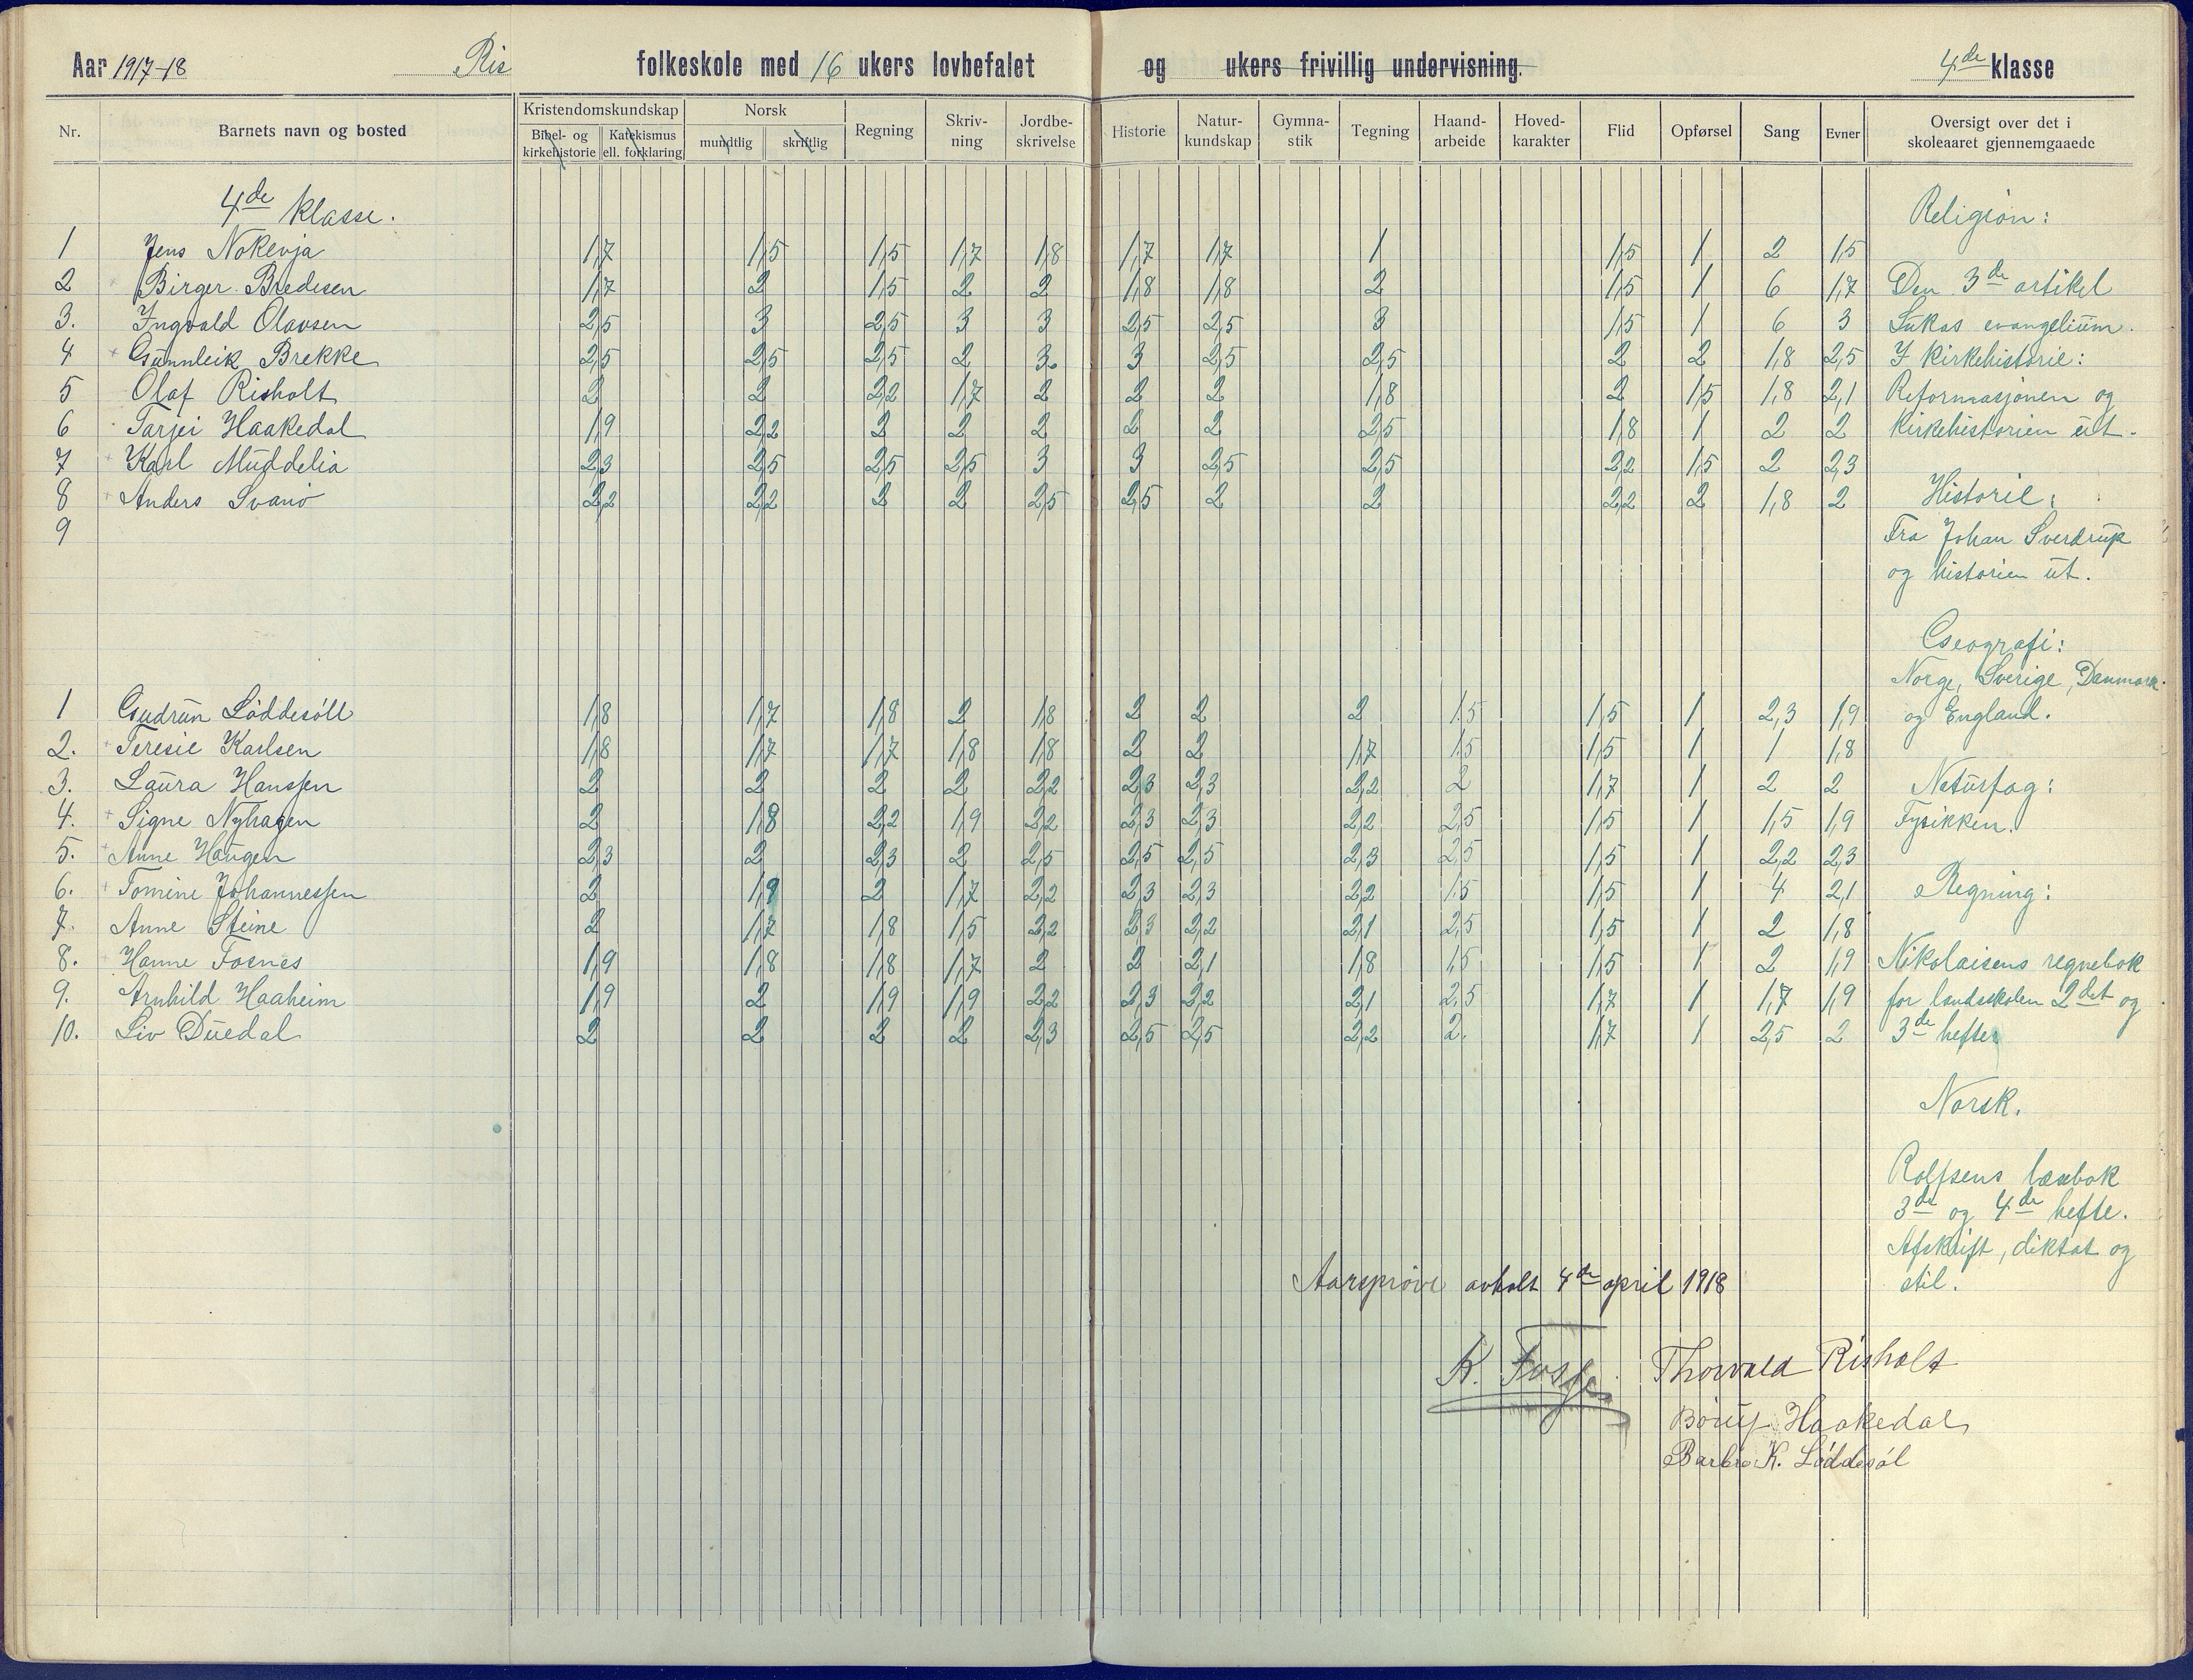 Aar 1917-18 Ris folkeskole med 16 ukers lovbefalet og ukers frivillig undervisning. 4de klasse
Nr. Barnets navn og bosted Kristendomskundskap Bibel- og kirkehistorie Katekismus ell. forklaring Norsk mundtlig skriftlig Regning Skriv-ning Jordbe-skrivelse Historie Natur-kundskap Gymna-stik Tegning Haand-arbeide Hoved-karakter Flid Opførsel Sang Evner Oversigt over det i skoleaaret gjennemgaaede
4de klasse.
1 Jens Nokevja 1,7 1,5 1,5 1,7 1,8 1,7 1,7 1 1,5 1 2 1,5
2 Birger Bredesen 1,7 2 1,5 2 2 1,8 1,8 2 1,5 1 6 1,7
3. Ingvald Olavsen 2,5 3 2,5 3 3 2,5 2,5 3 1,5 1 6 3
4 Gunnleik Brekke 2,5 2,5 2,5 2 3. 3 2,5 2,5 2 2 1,8 2,5
5 Olaf Risholt 2 2 2,2 1,7 2 2 2 1,8 2 1,5 1,8 2,1
6 Tarjei Haakedal 1,9 2,2 2 2 2 2 2 2,5 1,8 1 2 2
7 Karl Muddelia 2,3 2,5 2,5 2,5 3 3 2,5 2,5 2,2 1,5 2 2,3
8 Anders Svanø 2,2 2,2 2 2 2,5 2,5 2 2 2,2 2 1,8 2
9
1 Gudrun Løddesøll 1,8 1,7 1,8 2 1,8 2 2 2 1.5 1,5 1 2,3 1,9
2. Teresie Karlsen 1,8 1,7 1,7 1,8 1,8 2 2 1,7 1.5 1,5 1 1 1,8
3. Laura Hanssen 2 2 2 2 2,2 2,3 2,3 2,2 2 1,7 1 2 2
4. Signe Nyhagen 2 1,8 2,2 1,9 2,2 2,3 2,3 2,2 2,5 1,5 1 1,5 1,9
5. Anne Haugen 2,3 2 2,3 2 2,5 2,5 2,5 2,3 2,5 1,5 1 2,2 2,3
6. Tomine Johannessen 2 1,9 2 1,7 2,2 2,3 2,3 2,2 1.5 1,5 1 4 2,1
7. Anne Steine 2 1,7 1,8 1,5 2,2 2,3 2,2 2,1 2,5 1,5 1 2 1,8
8. Hanne Fosnes 1,9 1,8 1,8 1,7 2 2 2,1 1,8 1,5 1,5 1 2 1,9
9. Arnhild Haaheim 1,9 2 1,9 1,9 2,2 2,3 2,2 2,1 2,5 1,7 1 1,7 1,9
10. Liv Duedal 2 2 2 2 2,3 2,5 2,5 2,2 2. 1,7 1 2,5 2
Religion:
Den 3de artikel
Lukas evangelium.
I kirkehistorie:
Reformasjonen og
kirkehistorien ut.
Historie:
Fra Johan Sverdrup
og historien ut.
Geografi:
Norge, Sverige, Danmark
og England.
Naturfag:
Fysikken.
Regning:
Nikolaisens regnebok
for landsskolen 2det og
3de hefter
Norsk.
Rolfsens læsebok
3de og 4de hefte.
Afskrift, diktat og
stil.
Aarsprøve avholt 4de april 1918
K. Fosse. Thorvald Risholt
Haakedal
Barbro K. Løddesøl